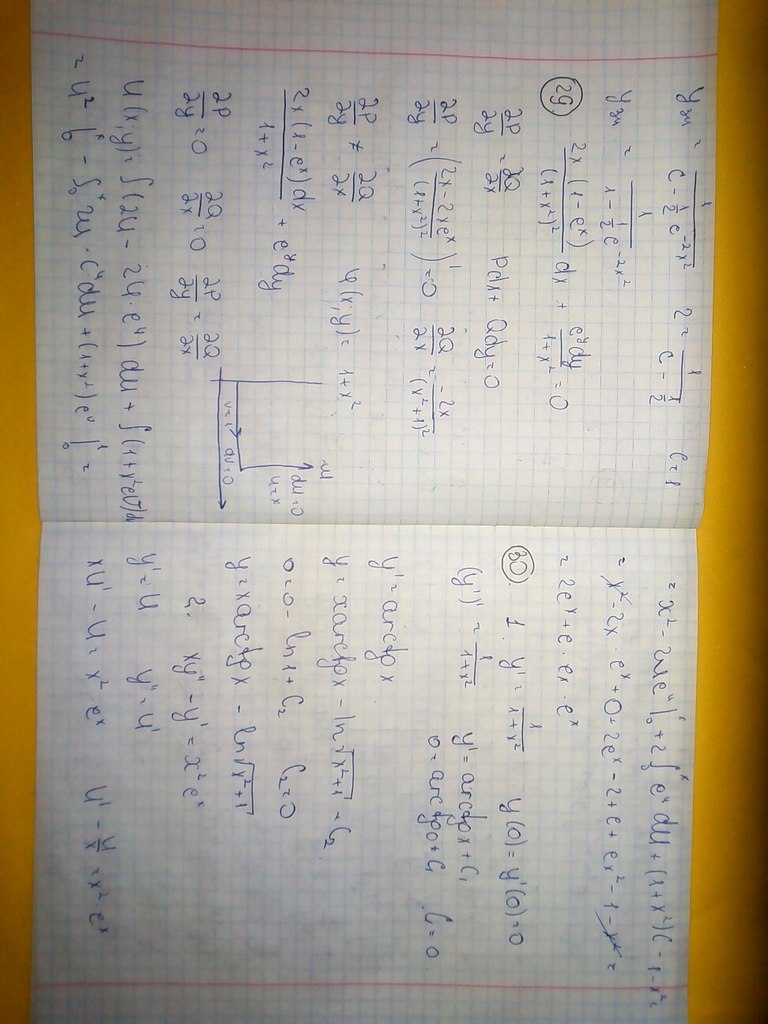 y_зч = 1/(C - 1/2 e^(-2x²)) 2 = 1/(C - 1/2) C = 1
y_зч = 1/(1 - 1/2 e^(-2x²))
29 2x(1-e^x)/(1+x²)² dx + e^y dy/(1+x²) = 0
∂P/∂y = ∂Q/∂x Pdx + Qdy = 0
∂P/∂y = ((2x - 2xe^x)/(1+x²)²)' = 0 ∂Q/∂x = -2x/(x²+1)²
∂P/∂y ≠ ∂Q/∂x φ(x,y) = 1+x²
2x(1-e^x)dx/(1+x²) + e^y dy
∂P/∂y = 0 ∂Q/∂x = 0 ∂P/∂y = ∂Q/∂x
v=1 dv=0
du=0
u=x
u(x,y) = ∫(2u - 2u·e^u)du + ∫(1+x²)
= u² |₀ˣ - ∫₀ˣ 2u·e^u du + (1+x²)e^v |₀¹ =
= x² - 2ue^u |₀ + 2∫ˣ e^u du + (1+x²)e - 1 - x² =
= x² - 2x·e^x + 0 + 2e^x - 2 + e + ex² - 1 - x² =
= 2e^x + e· ex · e^x
30 1. y'' = 1/(1+x²) y(0) = y'(0) = 0
(y')' = 1/(1+x²) y' = arctgx + C₁
0 = arctg0 + C₁ C = 0
y' = arctgx
y = xarctgx - ln√(x²+1) + C₂
0 = 0 - ln1 + C₂ C₂ = 0
y = xarctgx - ln√(x²+1)
2. xy'' - y' = x²e^x
y' = u y'' = u'
xu' - u = x²·e^x u' - u/x = x²·e^x